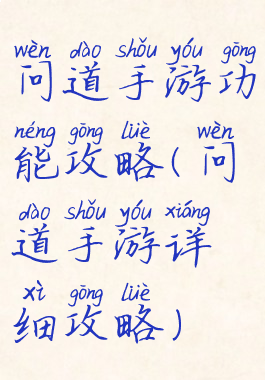 wèn dào shǒu yóu gōng
问道手游功
néng gōng lüè wèn
能攻略(问
dào shǒu yóu xiáng
道手游详
xì gōng lüè
细攻略)